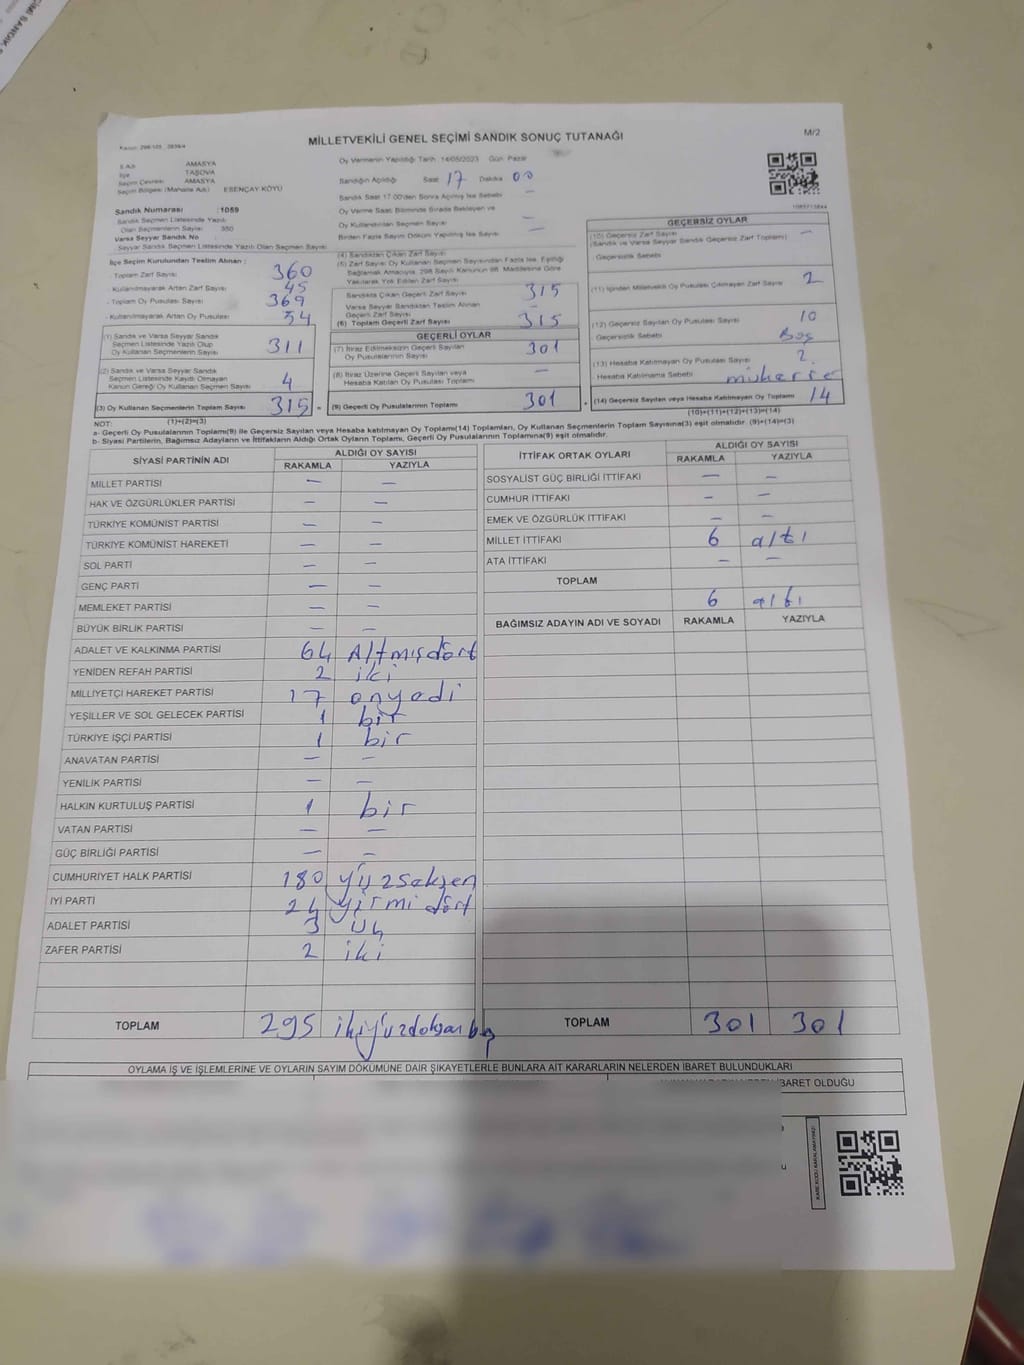 MİLLETVEKİLİ GENEL SEÇİMİ SANDIK SONUÇ TUTANAĞI
M/2
İli Adı AMASYA
İlçe TAŞOVA
Seçim Çevresi AMASYA
Seçim Bölgesi (Mahalle Adı) ESENÇAY KÖYÜ
Sandık Numarası :1059
Sandık Seçmen Listesinde Yazılı
Olan Seçmenlerin Sayısı 350
Varsa Seyyar Sandık No
Seyyar Sandık Seçmen Listesinde Yazılı Olan Seçmen Sayısı
İlçe Seçim Kurulundan Teslim Alınan :
- Toplam Zarf Sayısı 360
- Kullanılmayarak Artan Zarf Sayısı 45
- Toplam Oy Pusulası Sayısı 369
- Kullanılmayarak Artan Oy Pusulası 54
(1) Sandık ve Varsa Seyyar Sandık
Seçmen Listesinde Yazılı Olup
Oy Kullanan Seçmenlerin Sayısı 311
(2) Sandık ve Varsa Seyyar Sandık
Seçmen Listesinde Kayıtlı Olmayan
Kanun Gereği Oy Kullanan Seçmen Sayısı 4
(3) Oy Kullanan Seçmenlerin Toplam Sayısı 315 =
(1)+(2)=(3)
Oy Vermenin Yapıldığı Tarih 14/05/2023 Gün Pazar
Sandığın Açıldığı Saat 17 Dakika 00
Sandık Saat 17.00'den Sonra Açılmış İse Sebebi —
Oy Verme Saat Bitiminde Sırada Bekleyen ve
Oy Kullandırılan Seçmen Sayısı —
Birden Fazla Sayım Döküm Yapılmış İse Sayısı —
(4) Sandıktan Çıkan Zarf Sayısı
(5) Zarf Sayısı Oy Kullanan Seçmen Sayısından Fazla İse, Eşitliği
Sağlamak Amacıyla, 298 Sayılı Kanunun 98. Maddesine Göre
Yakılarak Yok Edilen Zarf Sayısı
Sandıkta Çıkan Geçerli Zarf Sayısı 315
Varsa Seyyar Sandıktan Teslim Alınan
Geçerli Zarf Sayısı —
(6) Toplam Geçerli Zarf Sayısı 315
GEÇERLİ OYLAR
(7) İtiraz Edilmeksizin Geçerli Sayılan
Oy Pusulalarının Sayısı 301
(8) İtiraz Üzerine Geçerli Sayılan veya
Hesaba Katılan Oy Pusulası Toplamı —
(9) Geçerli Oy Pusulalarının Toplamı 301 +
GEÇERSİZ OYLAR
(10) Geçersiz Zarf Sayısı
(Sandık ve Varsa Seyyar Sandık Geçersiz Zarf Toplamı) —
Geçersizlik Sebebi
(11) İçinden Milletvekili Oy Pusulası Çıkmayan Zarf Sayısı 2
(12) Geçersiz Sayılan Oy Pusulası Sayısı 10
Geçersizlik Sebebi Boş
(13) Hesaba Katılmayan Oy Pusulası Sayısı 2
Hesaba Katılmama Sebebi
(14) Geçersiz Sayılan veya Hesaba Katılmayan Oy Toplamı 14
(10)+(11)+(12)+(13)=(14)
NOT:
a- Geçerli Oy Pusulalarının Toplamı(9) ile Geçersiz Sayılan veya Hesaba katılmayan Oy Toplamı(14) Toplamları, Oy Kullanan Seçmenlerin Toplam Sayısına(3) eşit olmalıdır. (9)+(14)=(3)
b- Siyasi Partilerin, Bağımsız Adayların ve İttifakların Aldığı Ortak Oyların Toplamı, Geçerli Oy Pusulalarının Toplamına(9) eşit olmalıdır.
SİYASİ PARTİNİN ADI ALDIĞI OY SAYISI
RAKAMLA YAZIYLA
MİLLET PARTİSİ — —
HAK VE ÖZGÜRLÜKLER PARTİSİ — —
TÜRKİYE KOMÜNİST PARTİSİ — —
TÜRKİYE KOMÜNİST HAREKETİ — —
SOL PARTİ — —
GENÇ PARTİ — —
MEMLEKET PARTİSİ — —
BÜYÜK BİRLİK PARTİSİ — —
ADALET VE KALKINMA PARTİSİ 64 Altmışdört
YENİDEN REFAH PARTİSİ 2 iki
MİLLİYETÇİ HAREKET PARTİSİ 17 onyedi
YEŞİLLER VE SOL GELECEK PARTİSİ 1 bir
TÜRKİYE İŞÇİ PARTİSİ 1 bir
ANAVATAN PARTİSİ — —
YENİLİK PARTİSİ — —
HALKIN KURTULUŞ PARTİSİ 1 bir
VATAN PARTİSİ — —
GÜÇ BİRLİĞİ PARTİSİ — —
CUMHURİYET HALK PARTİSİ 180 yüzseksen
İYİ PARTİ 24 yirmi dört
ADALET PARTİSİ 3 üç
ZAFER PARTİSİ 2 iki
TOPLAM 295 ikiyüzdoksanbeş
İTTİFAK ORTAK OYLARI ALDIĞI OY SAYISI
RAKAMLA YAZIYLA
SOSYALİST GÜÇ BİRLİĞİ İTTİFAKI — —
CUMHUR İTTİFAKI — —
EMEK VE ÖZGÜRLÜK İTTİFAKI — —
MİLLET İTTİFAKI 6 altı
ATA İTTİFAKI — —
TOPLAM
6 altı
BAĞIMSIZ ADAYIN ADI VE SOYADI RAKAMLA YAZIYLA
TOPLAM 301 301
OYLAMA İŞ VE İŞLEMLERİNE VE OYLARIN SAYIM DÖKÜMÜNE DAİR ŞİKAYETLERLE BUNLARA AİT KARARLARIN NELERDEN İBARET BULUNDUKLARI
İBARET OLDUĞU